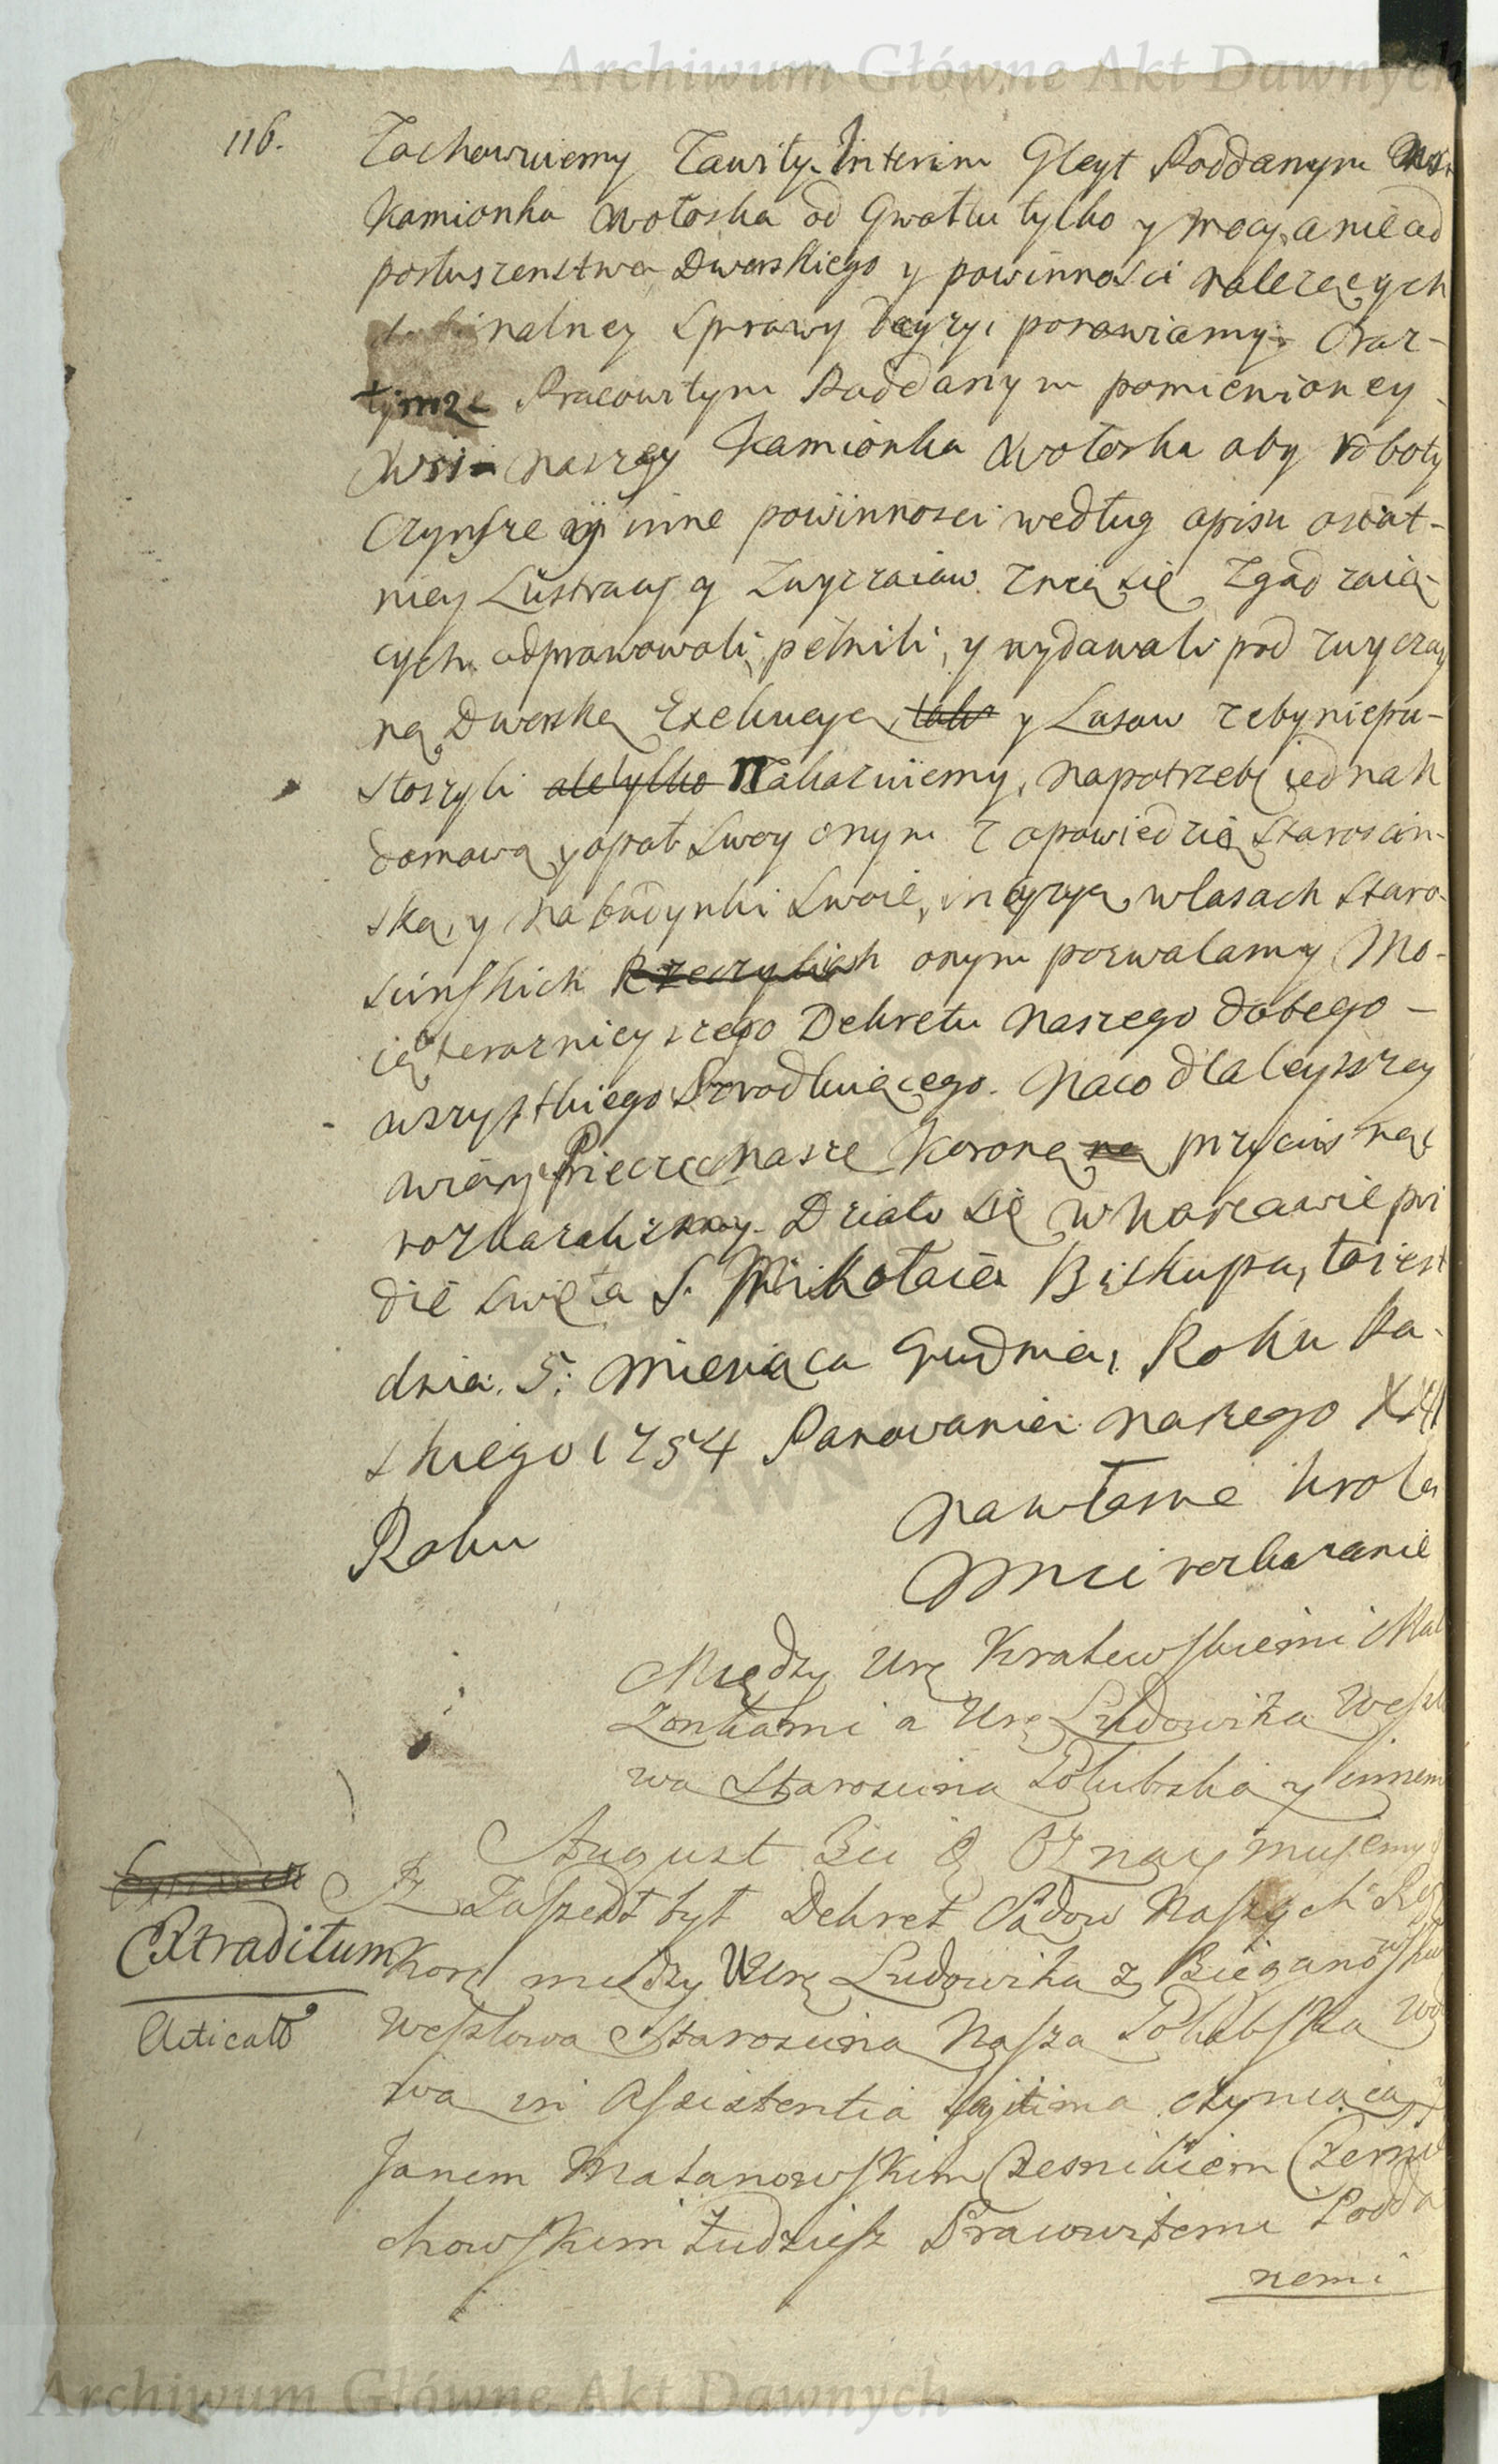 Archiwum Główne Akt Dawnych
116.
Zachowuiemy Zawity. Interim Gleyt Poddanym Wsi
Kamionka Wołoska od Gwałtu tylko y mocy, a nie od
posłuszenstwa Dworskiego y powinności nalezących
finalney Sprawy decyzyi ponawiamy. Oraz
tymze Pracowitym Poddanym pomienioney
Wsi naszey Kamionka Wołoska aby roboty
Czynsze y inne powinnosci według opisu ostat-
niey Lustracyi y Zwyczaiow z nią się zgadzaią-
cych odprawowali, pełnili, y wydawali pod zwyczay
ną Dworską Exekucyą, y Lasow zeby niepu-
stoszyli Nakazuiemy, na potrzebę iednak
domową y opał Swoy onym z opowiedzią Starościn-
ską, y na budynki Swoie, w lasach Staro-
scinskich onym pozwalamy Mo-
cią teraznieyszego Dekretu Naszego dotego
wszystkiego Srzodkuiącego. Na co dla lepszey
wiary Pieczęć Nasze Koronną przycisnąć
rozkazalismy. Działo się w Warszawie
dię Swięta S. Mikołaia Biskupa, to iest
dnia. 5. Miesiąca Grudnia, Roku Pa-
skiego 1754 Panowania Naszego
Roku
Na własne Krola
Mci rozkazanie
Między Ur Kratewskiemi Mał
Zonkami a Ur Ludowiką Wessl
wa Starosciną Golubską y innem
August
Oznaymuiemy
Iz Zaszedł był Dekret Sądow Naszych
Extraditum
Kor między Ur Ludowiką z Bieganowsk
Acticat
Wesslowa Starosciną Naszą Golubską
wa in Assistentia legitima czyniącą
Janem Małanowskim Czesnikiem Czernie
chowskim Tudziesz Pracowitemi Podda
nemi
Archiwum Główne Akt Dawnych